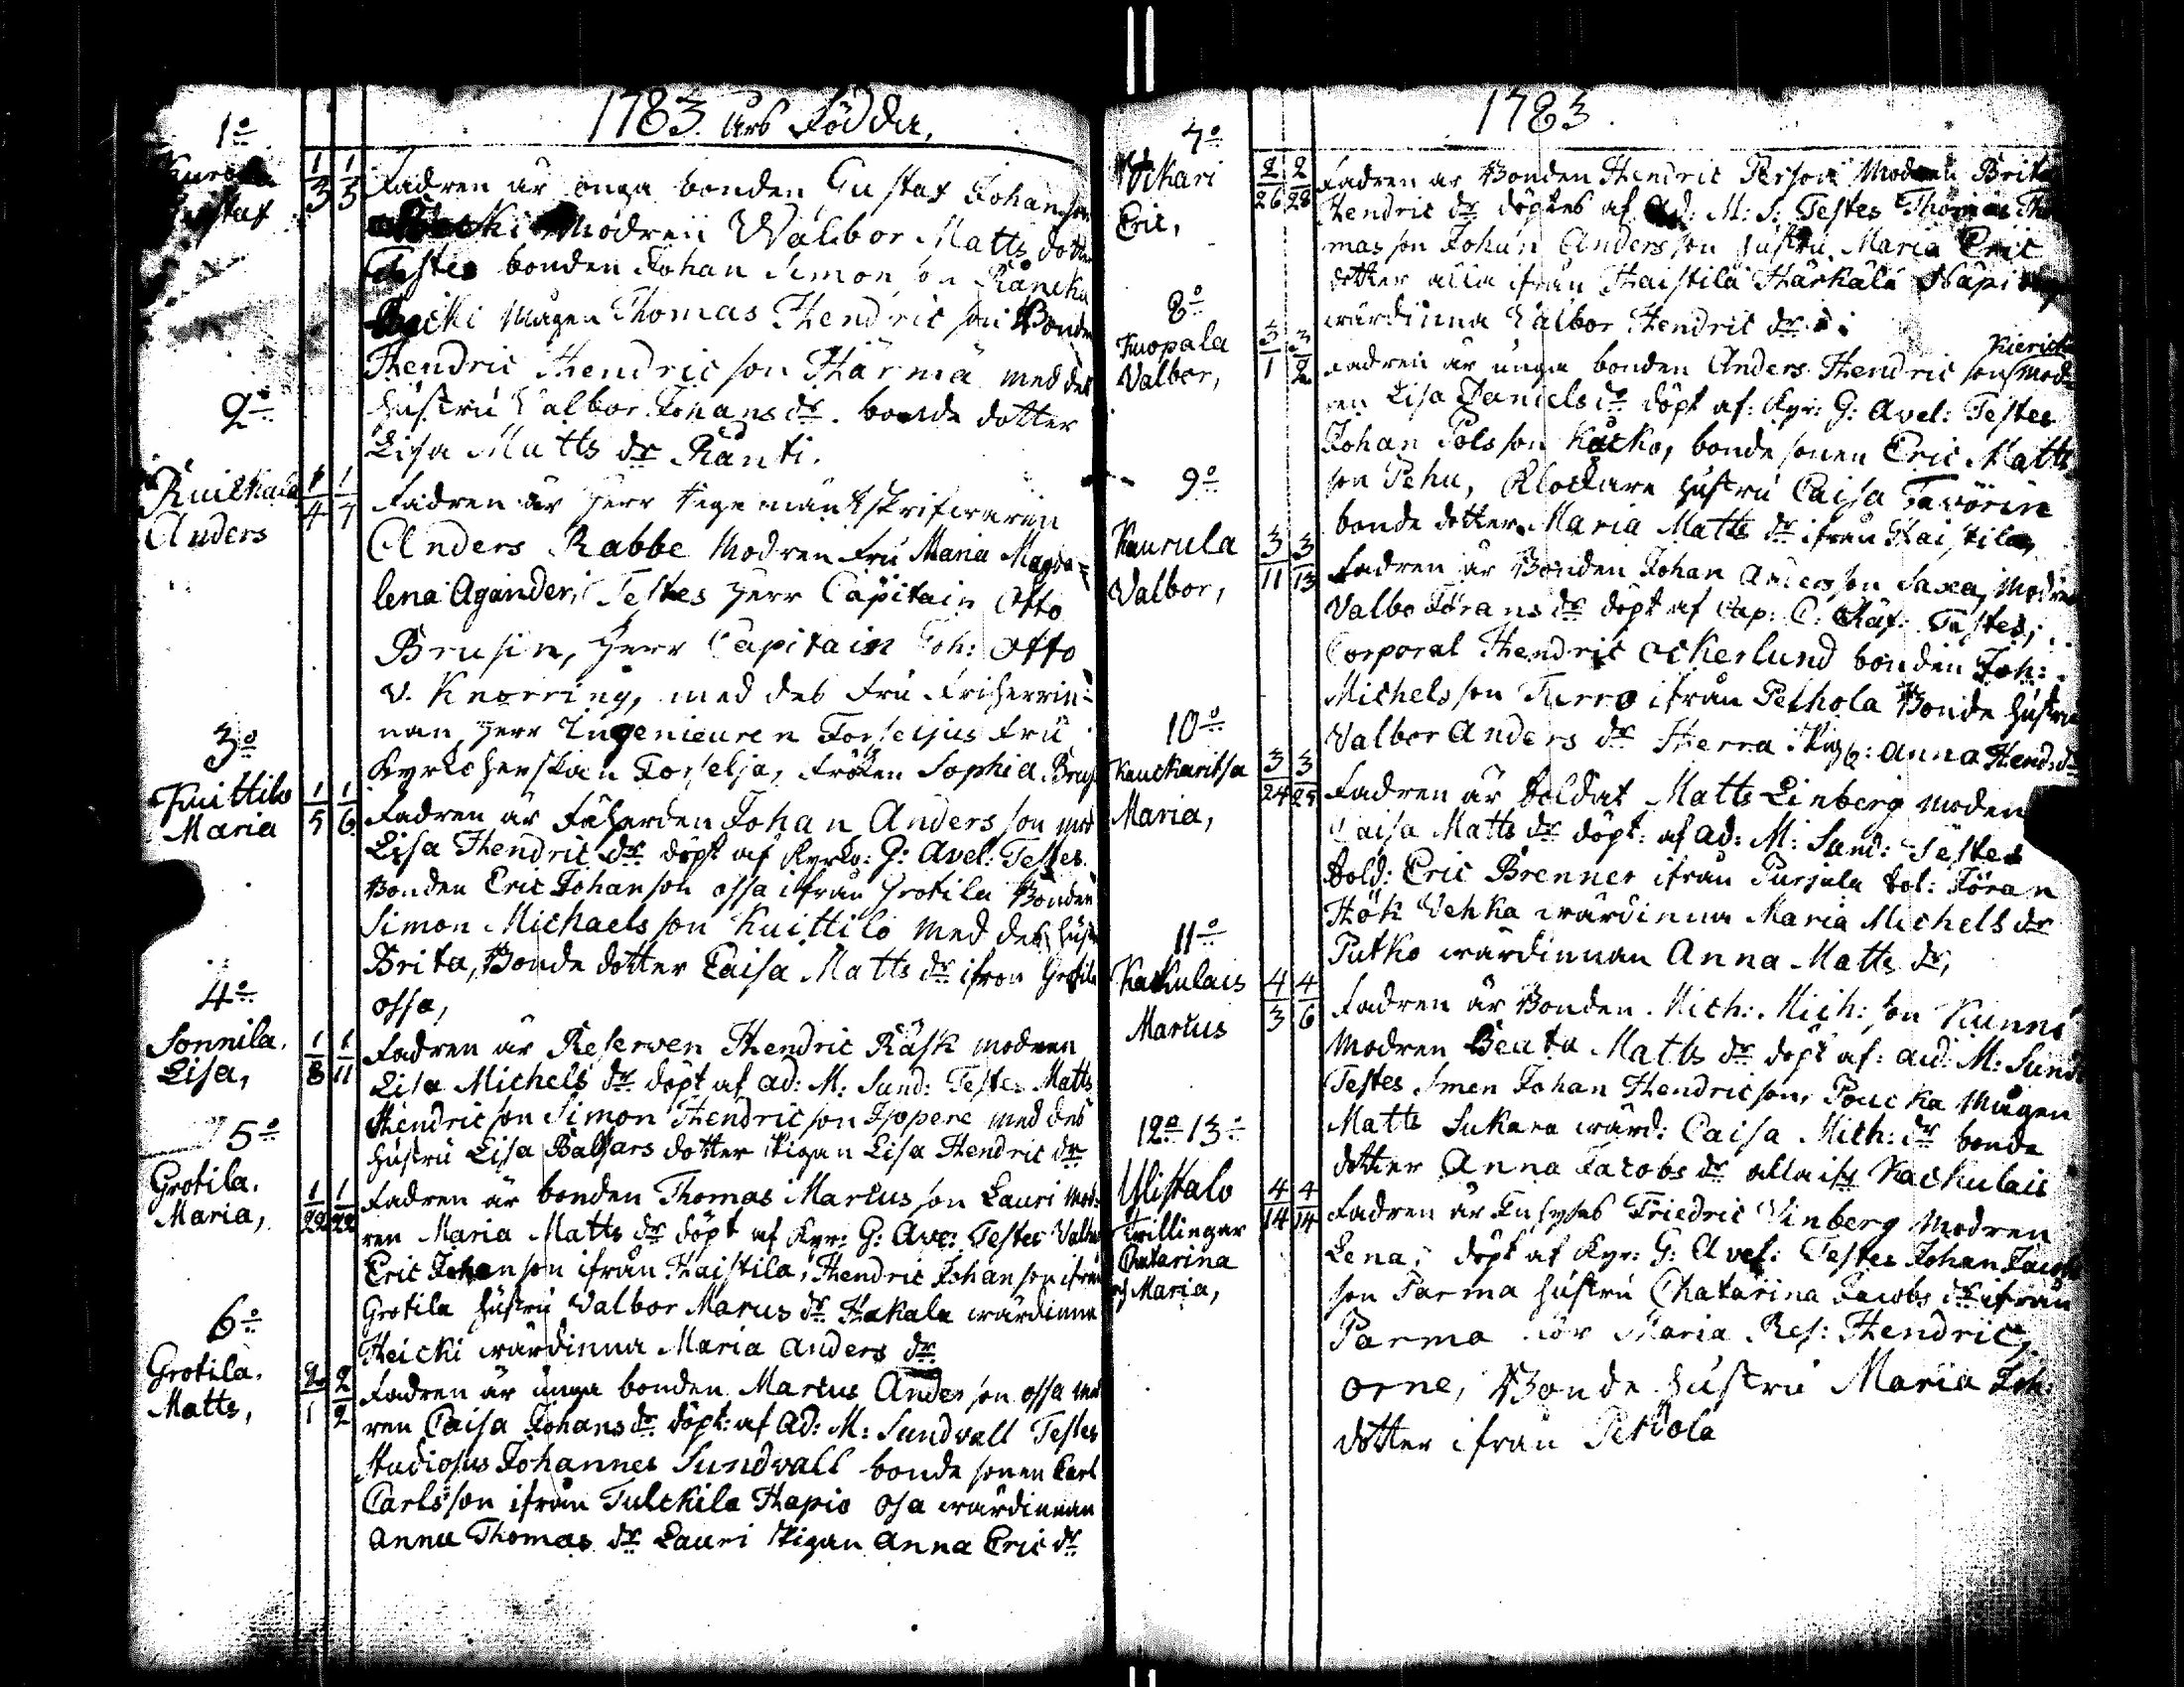 1783 års Födda,
1o
Gustaf
1/3 1/5
Fadren är unga bonden Gustaf Johan son
Modren Walbor Matts dotter
Testes bonden Johan Simon son
Mågen Thomas Hendric son Bonden
Hendric Hendric son Härmä med des
hustru Valbor Johans dr. bonde dotter
Lisa Matts dr Ranti.
2o
Anders
1/4 1/7
Fadren är Herr
Anders Rabbe Modren Fru Maria Magda=
lena Agander, Testes Herr Capitain Otto
Brusin, Herr Capitain Joh: Otto
v. Knorring, med des Fru Friherrin=
nan, Herr Ingenieuren Forseljus Fru
Kyrkoherskan Forselja, Fröken Sophia
3o
Kuittilo
Maria
1/5 1/6
Fadren är Fäherden Johan Anders son
Lisa Hendric dr döpt af Kyrko: G: Avel: Testes
Bonden Eric Johan son ossa ifrån Grotila Bonden
Simon Michaels son Kuittilo med des
Brita, Bonde dotter Caisa Matts dr ifrån
ossa,
4o
Sonnila.
Lisa,
1/8 1/11
Fadren är Reserven Hendric Räsk modren
Lisa Michels dr döpt af ad: M: Sund: Testes Matts
Hendric son Simon Hendric son Isopere med des
hustru Lisa dotter Pigan Lisa Hendric dr
5o
Grotila.
Maria,
1/22 1/22
Fadren är bonden Thomas Marcus son Lauri Mod:
ren Maria Matts dr döpt af Kyr: G: Ave: Testes
Eric Johan son ifrån Haistila, Hendric Johan son
Grotila hustru Valbor Marcus dr Hakala wärdinna
Heicki wärdinna Maria Anders dr
6o
Grotila.
Matts,
2/1 2/2
Fadren är unga bonden Marcus Anders son ossa
ren Caisa Johans dr döpt: af Ad: M: Sundvall Testes
Studiosus Johannes Sundvall bonde sonen Carl
Carls son ifrån Tulckila Hapio osa wärdinnan
Anna Thomas dr Lauri Pigan Anna Eric dr
1783
7o
Eric,
2/26 2/28
Fadren är Bonden Hendric Person Modren Brita
Hendric dr döptes af Ad: M: S: Testes Thomas Tho
mas son Johan Anders son hustru Maria Eric
dotter alla ifrån Haistila Härkälä
wärdinna Valbor Hendric dr
8o
Kuopala
Valbor,
3/1 3/2
Fadren är unga bonden Anders Hendric son Mod
ren Lisa Daniels dr döpt af: Kyr: G: Avel: Testes
Johan Pols son Kacko, bonde sonen Eric Matts
son Pehu, Klockare hustru Caisa
bonde dotter Maria Matts dr ifrån Haistila,
9o
Kaurula
Valbor,
3/11 3/13
Fadren är Bonden Johan Anders son Saxa, Modren
Valbo Jörans dr döpt af Cap: C: Testes;
Corporal Hendric Ockerlund bonden Joh:
Michels son Turro ifrån Pethola Bonde hustru
Valbor Anders dr Herra Anna Hend: dr
10o
Kauckaritsa
Maria,
3/24 3/25
Fadren är Soldat Matts Linberg moden
Caisa Matts dr döpt: af ad: M: Sund: Testes
Sold: Eric Brenner ifrån Pursala Sol: Jöran
Hök Vehka wärdinna Maria Michels dr
Putko wärdinnan Anna Matts dr,
11o
Kackulais
Marcus
4/3 4/6
Fadren är Bonden Mich: Mich: son Kunni
Modren Beata Matts dr döpt af: ad: M: Sund
Testes Johan Hendric son, Poucka Mågen
Matts Sukara wärd: Caisa Mich: dr bonde
dotter Anna Jacobs dr alla Kackulais
12o 13o
Ylistalo
Tvillingar
Chatarina
och Maria,
4/14 4/14
Fadren är Friedric Vinberg Modren
Lena, döpt af Kyr: G: Avel: Testes Johan Jacob
son Parma hustru Chatarina Jacobs dr ifrån
Parma Maria Res: Hendric
orne, Bonde hustru Maria Joh:
dotter ifrån